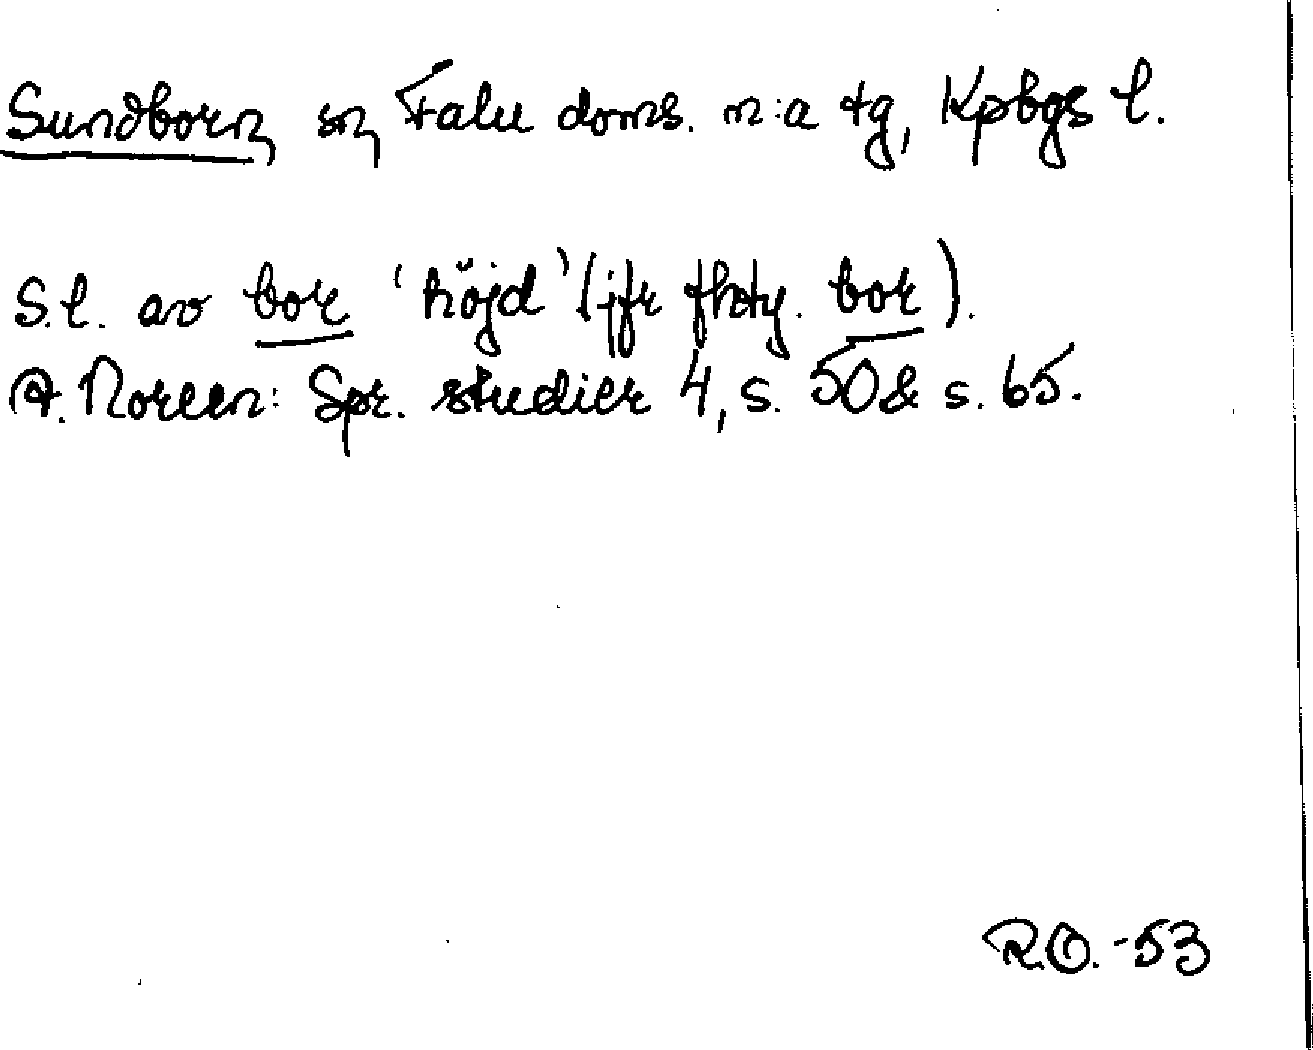 Sundborn, sn, Falu doms. n:a tg, Kpbgs l.
S.l. av bor 'höjd' (jfr fhty. bor).
A. Noreen: Spr. studier 4, s. 50 & s. 65.
R.O. -53